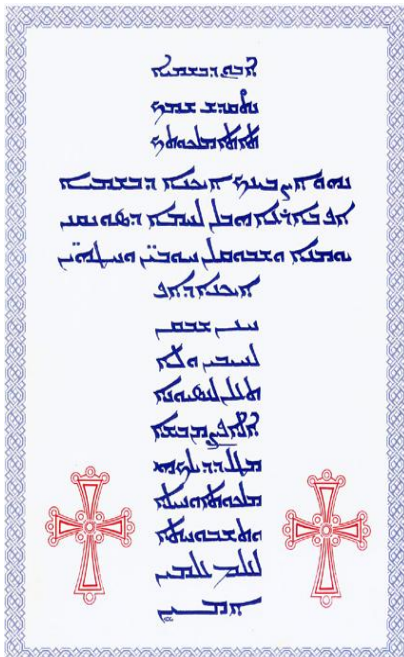 ܐܒܘܢ ܕܒܫܡܝܐ
ܢܬܩܕܫ ܫܡܟ
ܬܐܬܐ ܡܠܟܘܬܟ
ܢܗܘܐ ܨܒܝܢܟ ܐܝܟܢܐ ܕܒܫܡܝܐ
ܐܦ ܒܐܪܥܐ ܗܒ ܠܢ ܠܚܡܐ ܕܣܘܢܩܢܢ
ܝܘܡܢܐ ܘܫܒܘܩ ܠܢ ܚܘܒܝ̈ܢ ܘܚܛܗܝ̈ܢ
ܐܝܟܢܐ ܕܐܦ
ܚܢܢ ܫܒܩܢ
ܠܚܝܒܝܢ ܘܠܐ
ܬܥܠܢ ܠܢܣܝܘܢܐ
ܐܠܐ ܦܨܢ ܡܢ ܒܝܫܐ
ܡܛܠ ܕܕܝܠܟ ܗܝ
ܡܠܟܘܬܐ ܘܚܝܠܐ
ܘܬܫܒܘܚܬܐ
ܠܥܠܡ ܥܠܡܝܢ
ܐܡܝܢ